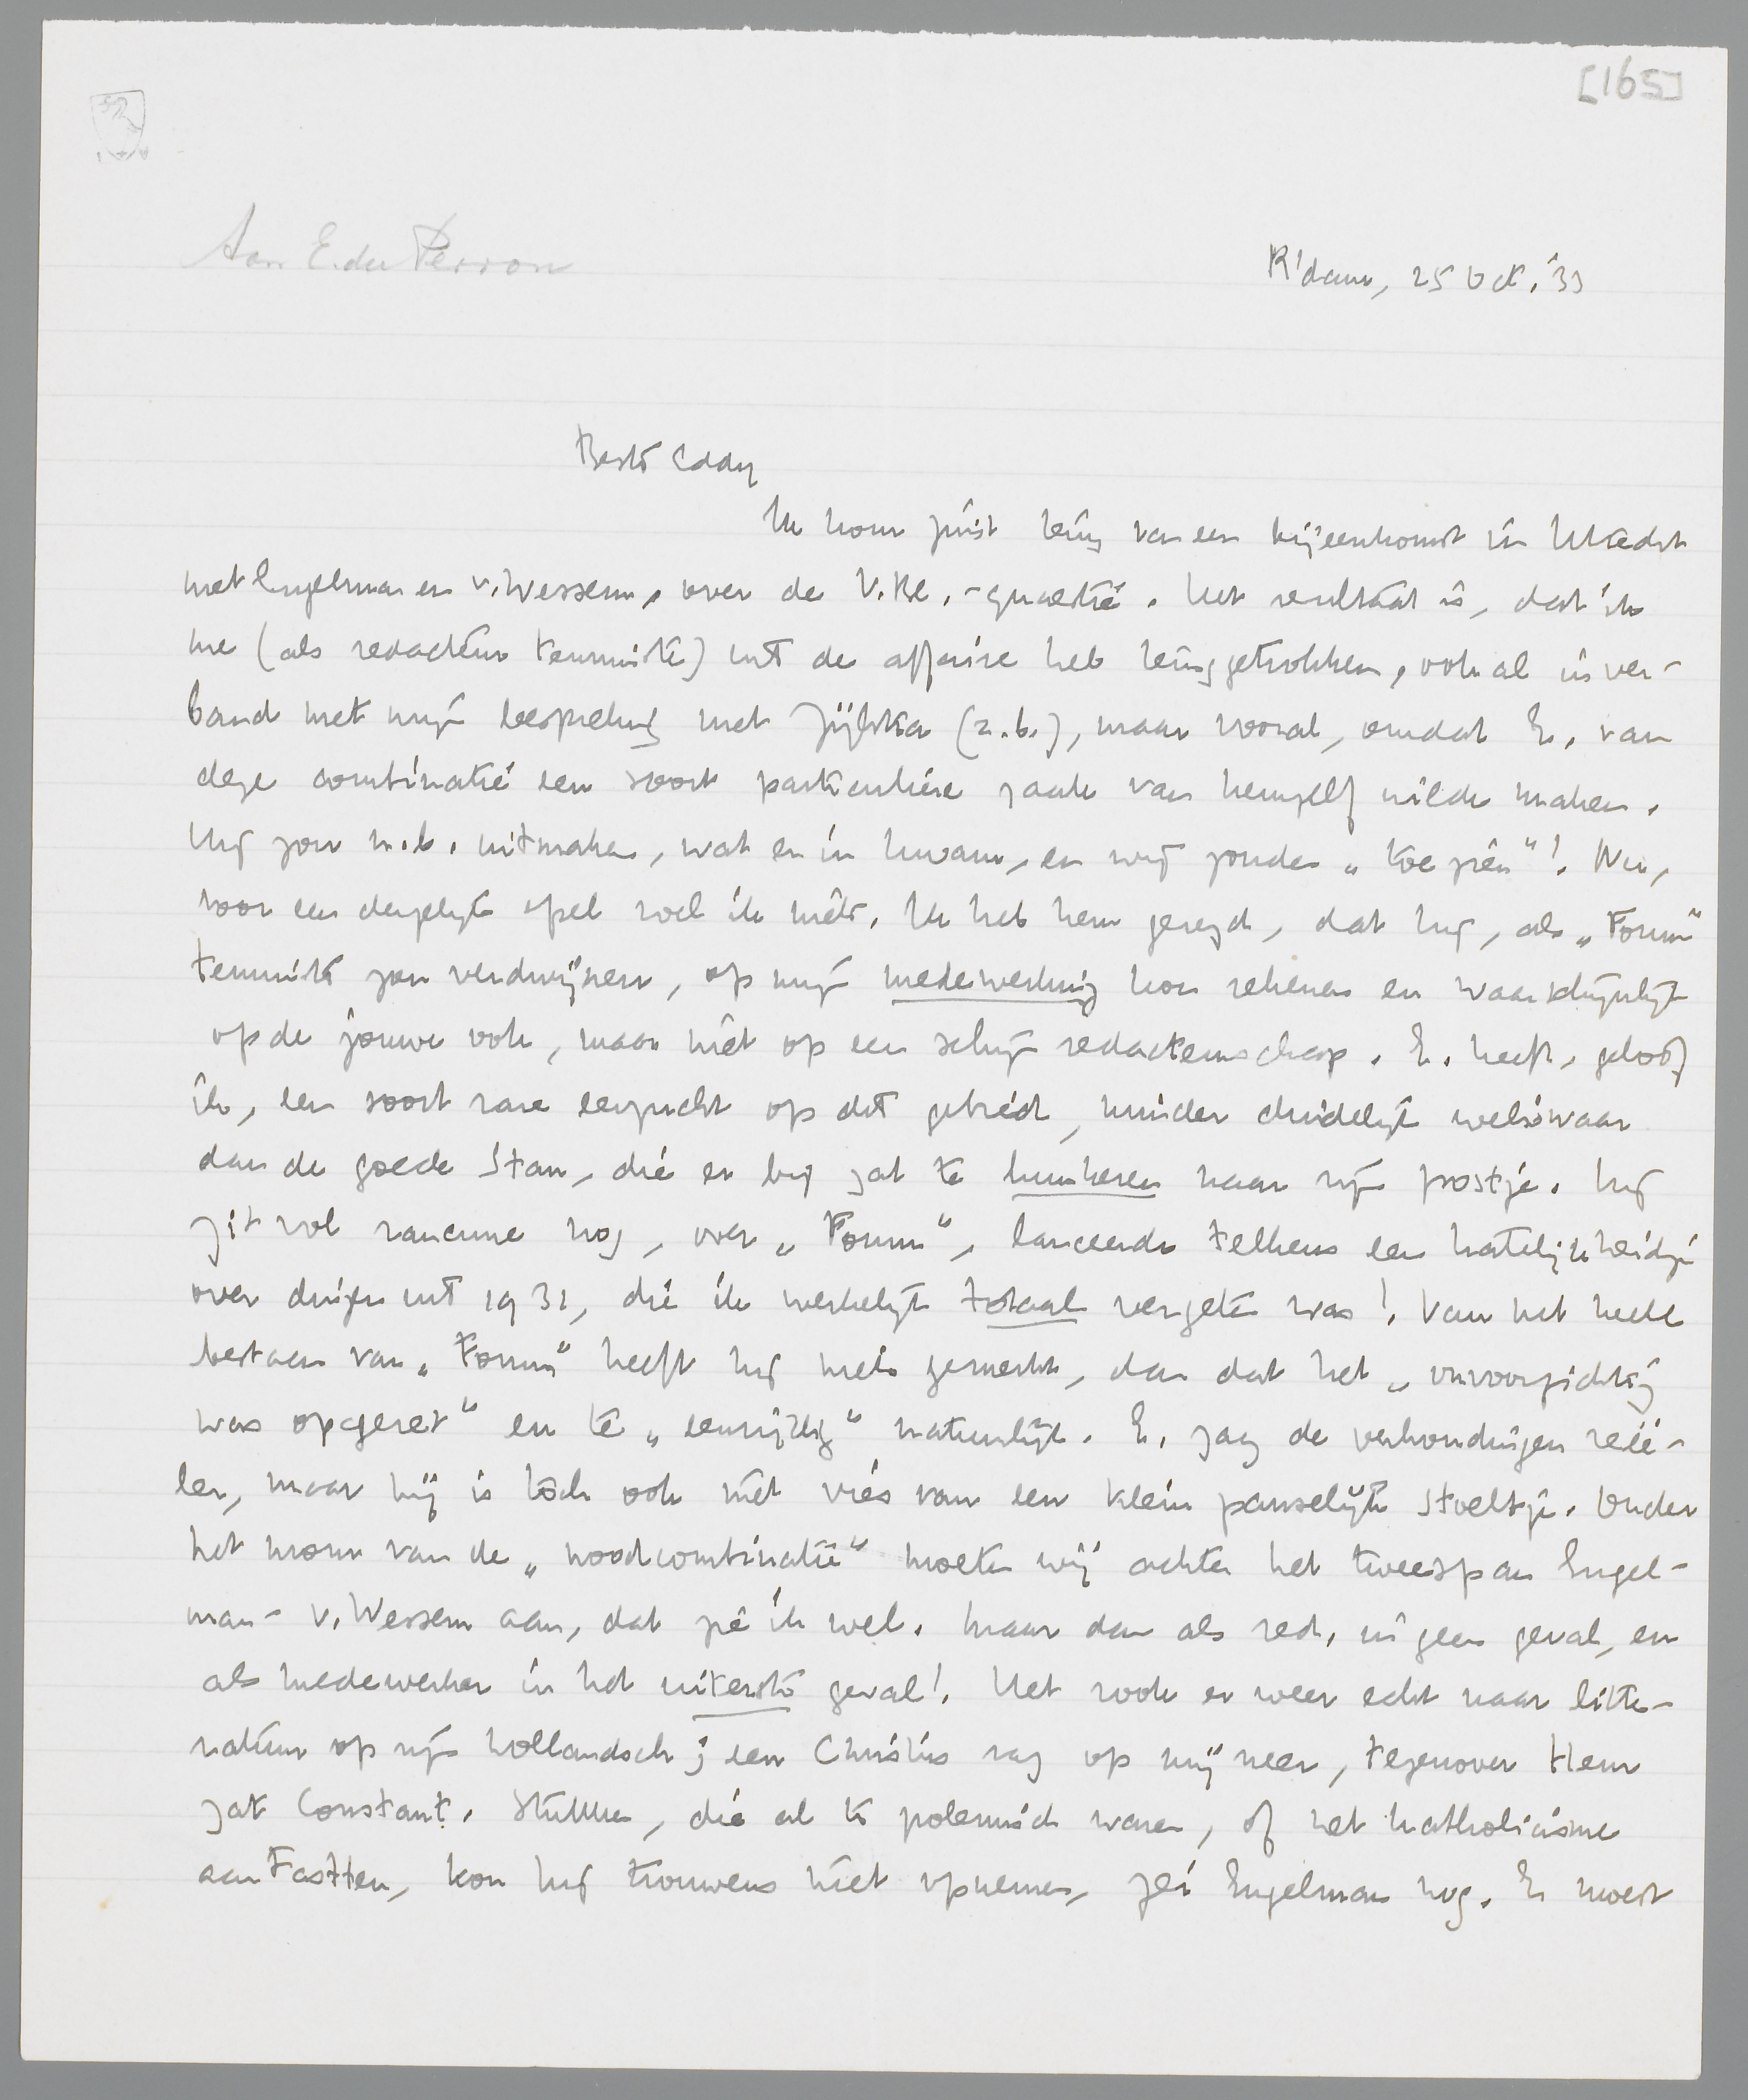 [165]
Aan E. du Perron
R'dam, 25 Oct. '33
Beste Eddy
Ik kom juist terug van een bijeenkomst in Utrecht
met Engelman en v. Wessem, over de V.Bl.-quaestie. Het resultaat is, dat ik
me (als redacteur tenminste) uit de affaire heb teruggetrokken, ook al in ver-
band met mijn bespreking met Zijlstra (z.b.), maar vooral, omdat E. van
deze combinatie een soort particuliere zaak van hemzelf wilde maken.
Hij zou n.b. uitmaken, wat er in kwam, en wij zouden „toezien"! Nu,
voor een dergelijk spel voel ik niets. Ik heb hem gezegd, dat hij, als „Forum"
tenminste zou verdwijnen, op mijn medewerking kon rekenen en waarschijnlijk
op de jouwe ook, maar niet op een schijnredacteurschap. E. heeft, geloof
ik, een soort rare eerzucht op dit gebied, minder duidelijk weliswaar
dan de goede Stan, die er bij zat te hunkeren naar zijn postje. Hij
zit vol rancune nog, over „Forum", lanceerde telkens een hatelijkheidje
over dingen uit 1931, die ik werkelijk totaal vergeten was! Van het heele
bestaan van „Forum" heeft hij niets gemerkt, dan dat het „onvoorzichtig
was opgezet" en te „eenzijdig" natuurlijk. E. zag de verhoudingen reëe-
ler, maar hij is toch ook niet vies van een klein pauselijk stoeltje. Onder
het mom van de „noodcombinatie" moeten wij achter het tweespan Engel-
man - v. Wessem aan, dat zie ik wel. Maar dan als red. in geen geval, en
als medewerker in het uiterste geval! Het rook er weer echt naar litte-
ratuur op zijn hollandsch; een Christus zag op mij neer, tegenover Hem
zat Constant. Stukken, die al te polemisch waren, of het katholicisme
aantastten, kon hij trouwens niet opnemen, zei Engelman nog. Er moest